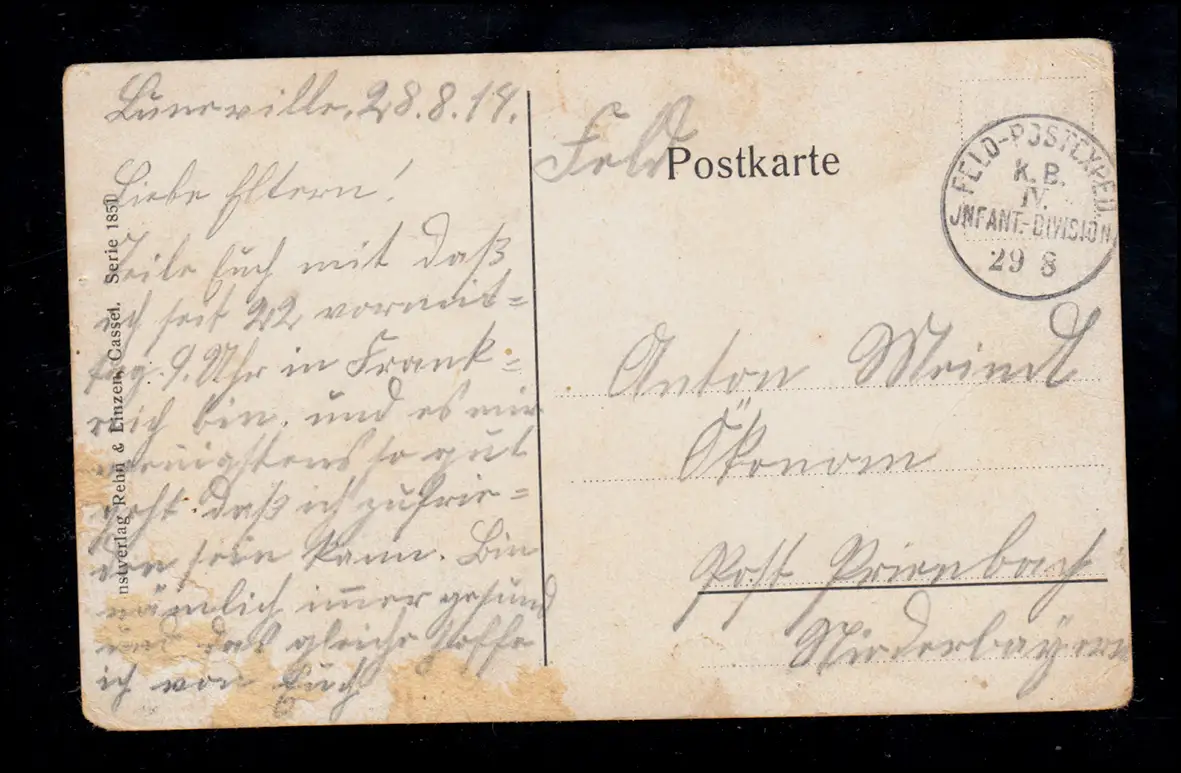 Luneville, 28.8.14.
Liebe Eltern!
Teile Euch mit daß
ich seit 22 vormit-
tag 9. Uhr in Frank-
reich bin. und es mir
wenigstens so gut
geht daß ich zufrie-
den sein kann. Bin
nämlich immer gesund
und das gleiche hoffe
ich von Euch
nstverlag Rehn & Linzen, Cassel. Serie 1850
Feld Postkarte
FELD-POSTEXPED.
K. B.
IV.
JNFANT.-DIVISION
29 8
Anton Meindl
Ökonom
Post Prienbach
Niederbayern